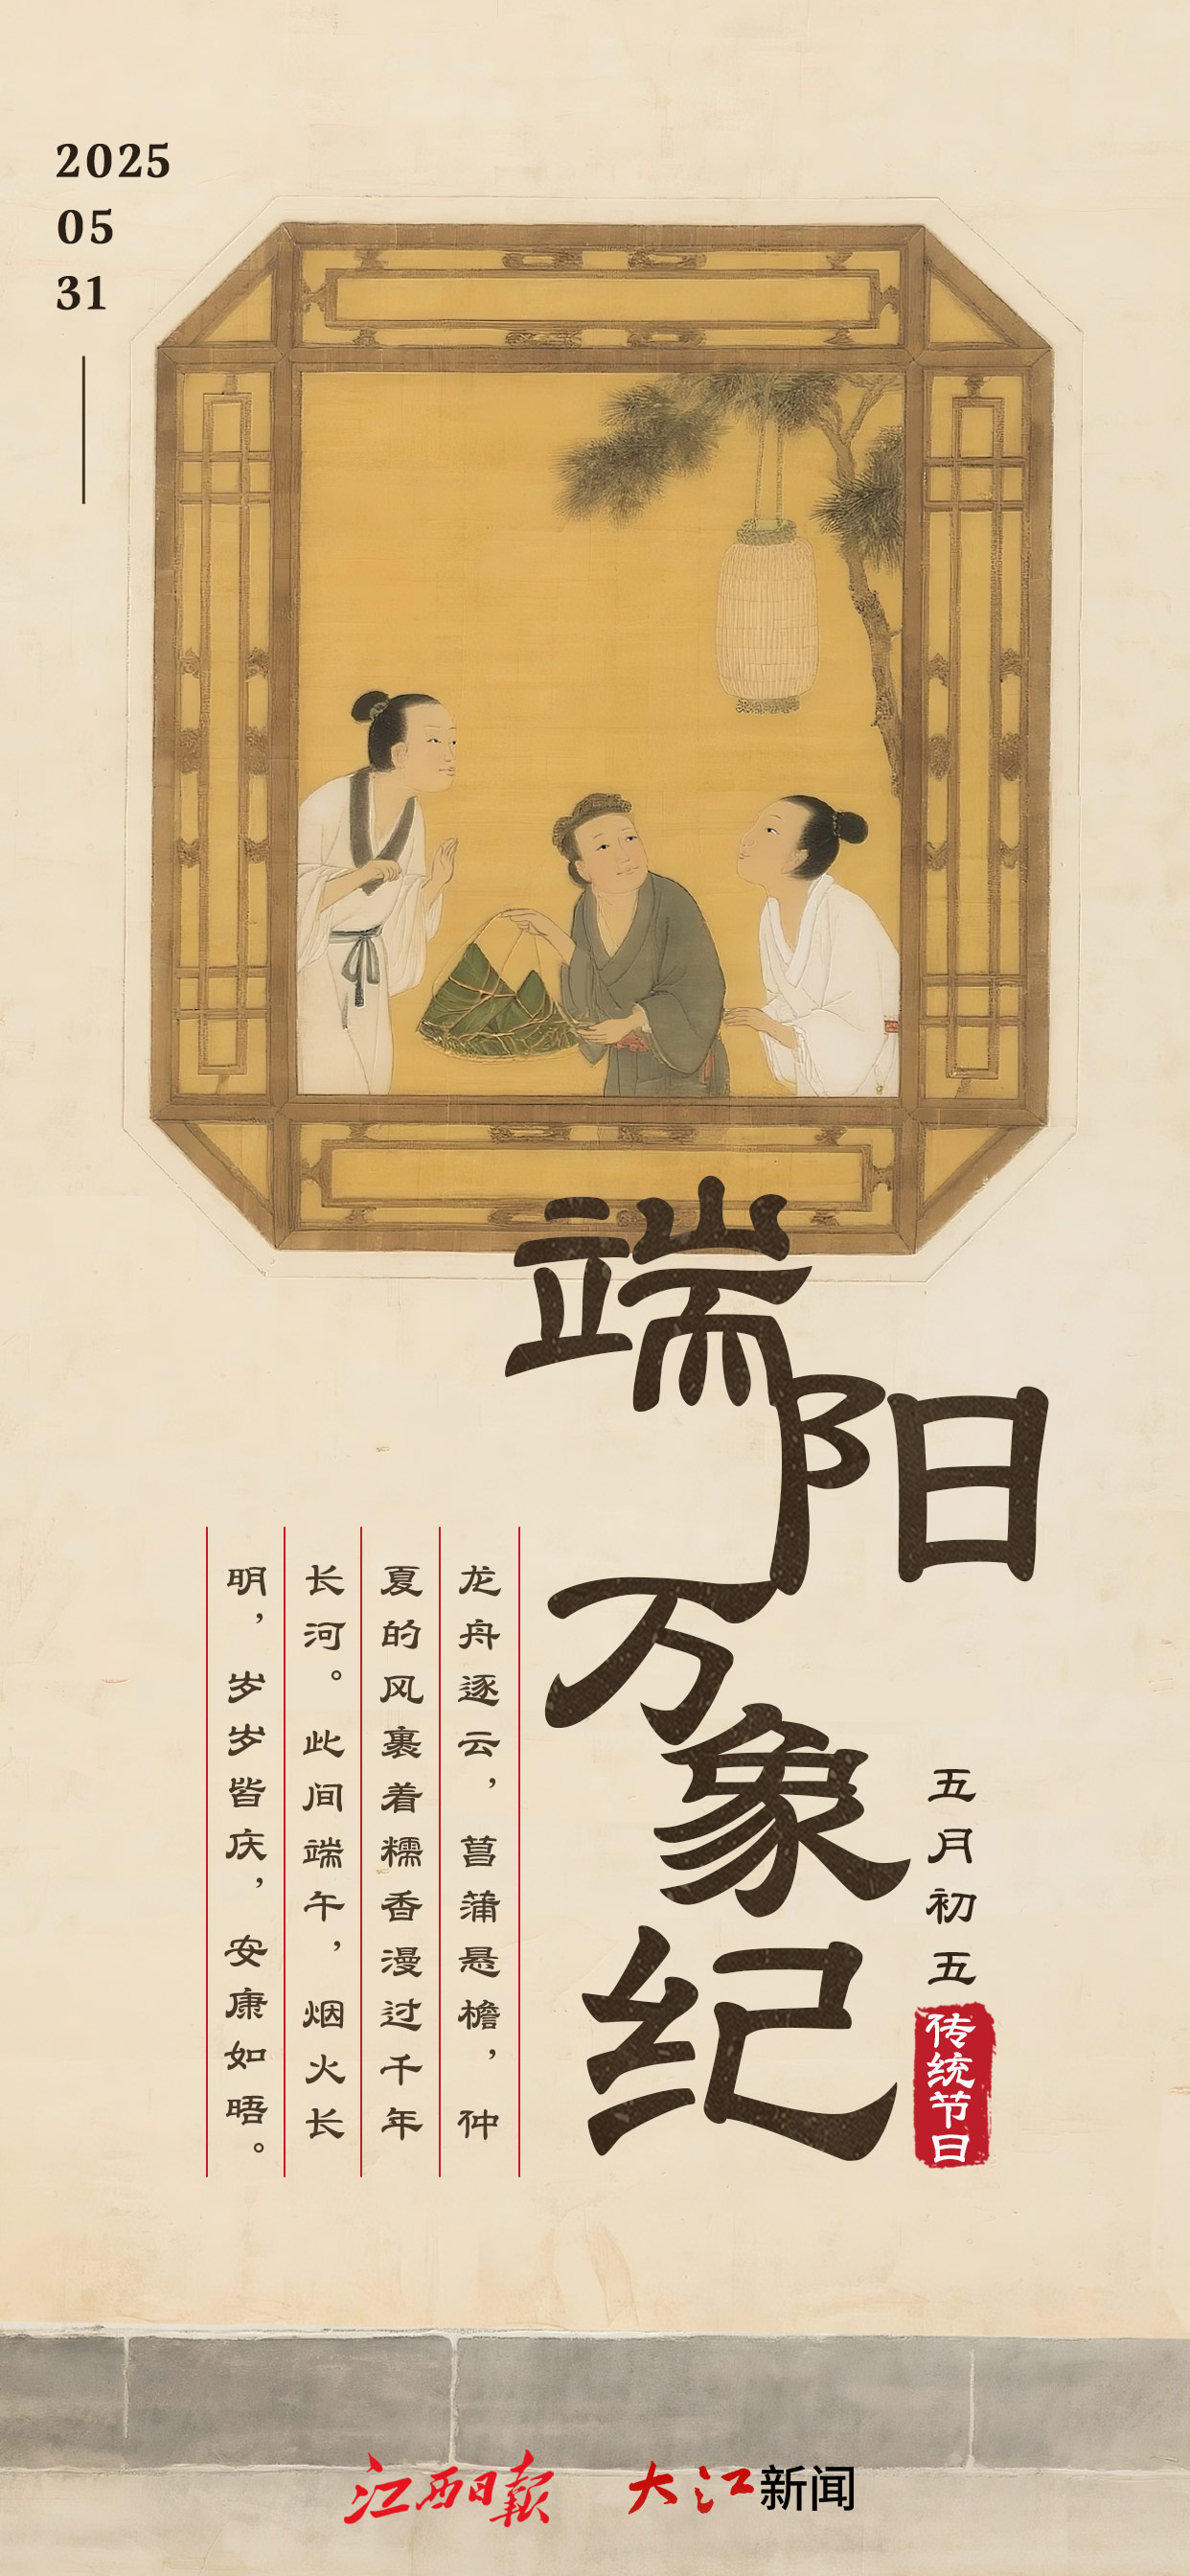 2025
05
31
端阳
万象纪
五月初五
传统节日
龙舟逐云，菖蒲悬檐，仲
夏的风裹着糯香漫过千年
长河。此间端午，烟火长
明，岁岁皆庆，安康如晤。
江西日报 大江新闻